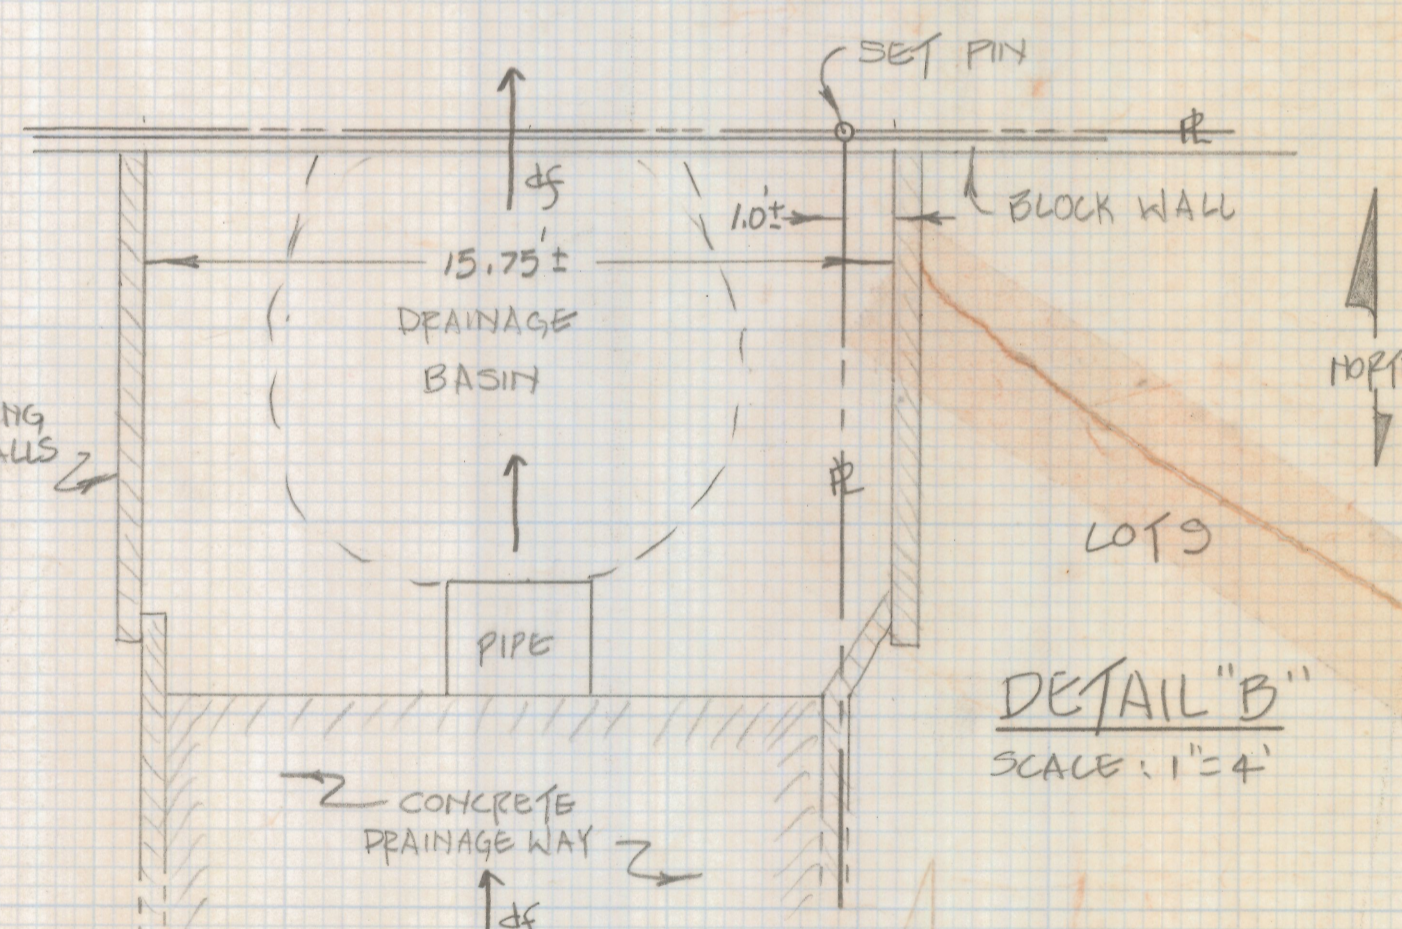 SET PIN
PL
df
1.0'±
BLOCK WALL
15.75'±
DRAINAGE
BASIN
NG
ALLS
PL
LOT 9
PIPE
DETAIL "B"
SCALE: 1"=4'
CONCRETE
DRAINAGE WAY
df